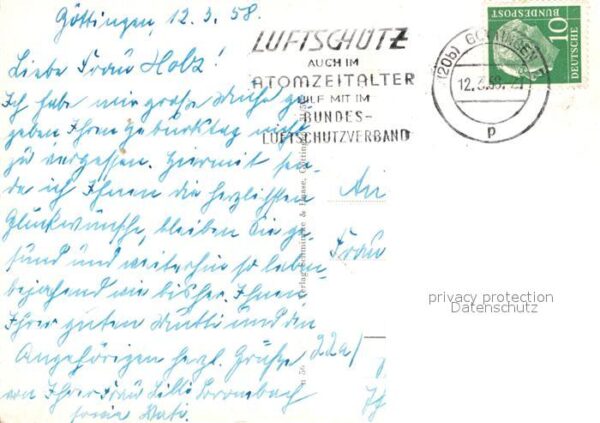 Göttingen, 12.3.58.
Liebe Frau Holz!
Ich habe mir große Mühe ge-
geben Ihren Geburtstag nicht
zu vergessen. Hiermit sen-
de ich Ihnen die herzlichsten
Glückwünsche, bleiben Sie ge-
sund und weiterhin so leben-
bejahend wie bisher. Ihnen
Ihrer guten Mutti und den
Angehörigen herzl. Grüße
von Ihrer Frau Lilli
sowie Vati.
LUFTSCHUTZ
AUCH IM
ATOMZEITALTER
HILF MIT IM
BUNDES-
LUFTSCHUTZVERBAND
(20b) GÖTTINGEN
12.3.58
p
DEUTSCHE
BUNDESPOST
10
An
Frau
22a/
privacy protection
Datenschutz